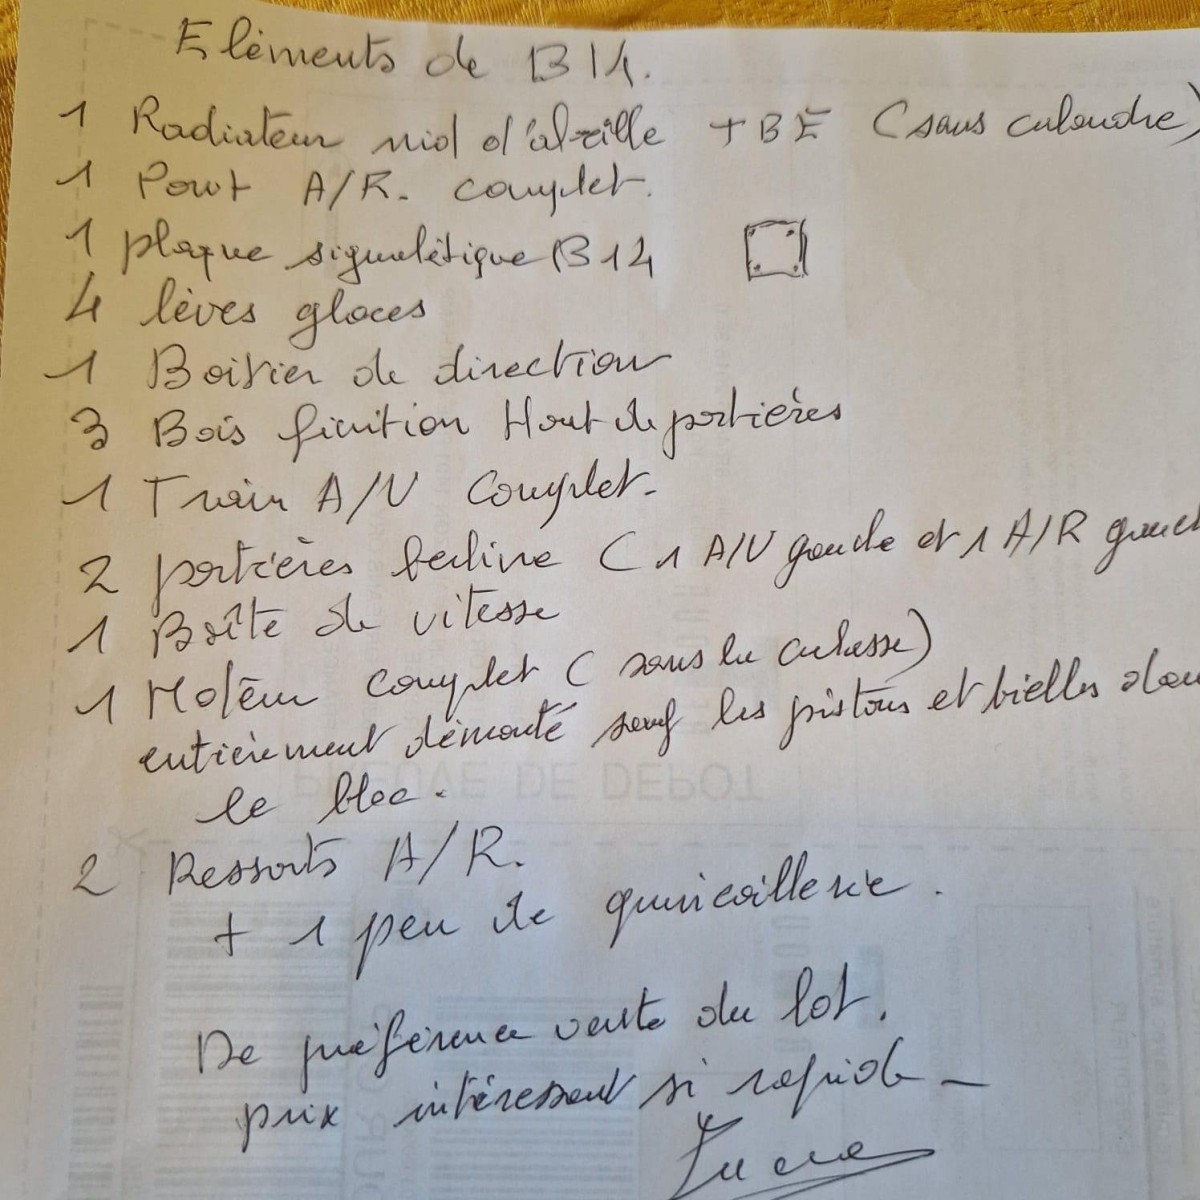 Eléments de B14.
1 Radiateur nid d'abeille TBE (sans calandre)
1 Pont A/R. complet.
1 plaque signalétique B14
4 lèves glaces
1 Boitier de direction
3 Bois finition Haut de portières
1 Train A/V complet.
2 portières berline (1 A/V gauche et 1 A/R gauc
1 Boîte de vitesse
1 Moteur complet (sans la culasse)
entièrement démonté sauf les pistons et bielles dan
le bloc.
2 Ressorts A/R.
+ 1 peu de quincaillerie.
De préférence vente du lot.
prix intéressant si rapide_
PREUVE DE DEPOT